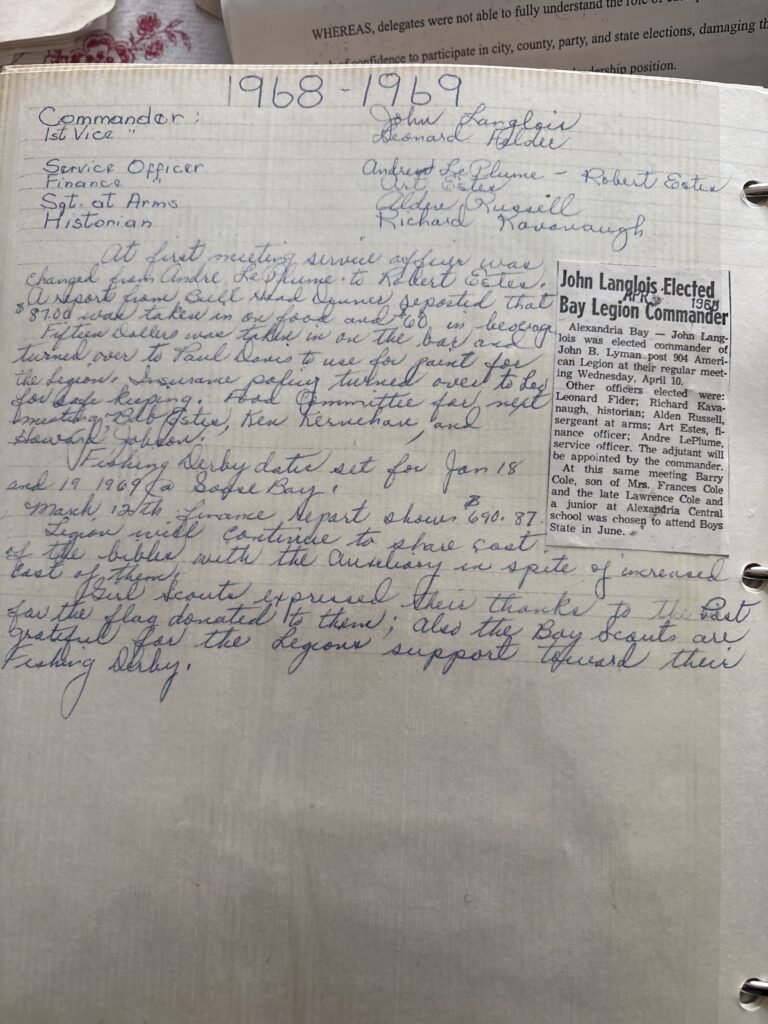 WHEREAS, delegates were not able to fully understand the role of
confidence to participate in city, county, party, and state elections, damaging th
position.
1968-1969
Commander: John Langlois
1st Vice " Leonard Felder
Service Officer Andre LePlume - Robert Estes
Finance " Art Estes
Sgt. at Arms Alden Russell
Historian Richard Kavanaugh
At first meeting service officer was
changed from Andre LePlume to Robert Estes.
A report from Bull Head Dinner reposted that
$87.00 was taken in on food and $60. in beverage
Fifteen Dollars was taken in on the bar and
turned over to Paul Davis to use for paint for
the Legion. Insurance policy turned over to
for safe keeping. Food Committee for next
meeting, Bob Estes, Ken Kernehan, and
Howard Jobson.
Fishing Derby date set for Jan 18
and 19 1969 @ Goose Bay.
March 12th finance report shows $690.87.
Legion will continue to share cost
of the bibles with the Auxiliary in spite of increased
cost of them.
Girl Scouts expressed their thanks to the Post
for the flag donated to them; also the Boy Scouts are
grateful for the Legions support toward their
Fishing Derby.
John Langlois Elected
APR 1968
Bay Legion Commander
Alexandria Bay — John Lang-
lois was elected commander of
John B. Lyman post 904 Ameri-
can Legion at their regular meet-
ing Wednesday, April 10.
Other officers elected were:
Leonard Flder; Richard Kava-
naugh, historian; Alden Russell,
sergeant at arms; Art Estes, fi-
nance officer; Andre LePlume,
service officer. The adjutant will
be appointed by the commander.
At this same meeting Barry
Cole, son of Mrs. Frances Cole
and the late Lawrence Cole and
a junior at Alexandria Central
school was chosen to attend Boys
State in June.